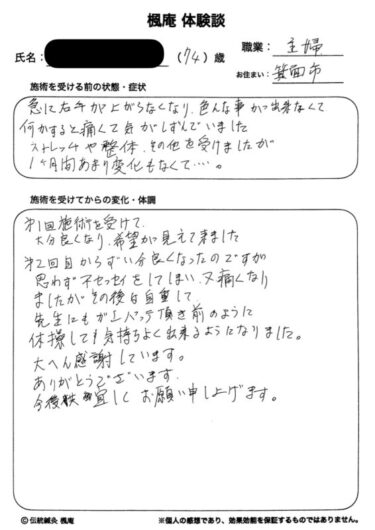 楓庵 体験談
氏名： （74）歳
職業： 主婦
お住まい： 箕面市
施術を受ける前の状態・症状
急に右手が上がらなくなり、色んな事が出来なくて
何かすると痛くて気がしずんでいました
ストレッチや整体、その他を受けましたが
1ヶ月間あまり変化もなくて…。
施術を受けてからの変化・体調
第1回施術を受けて、
大分良くなり、希望が見えて来ました
第2回目からずい分良くなったのですが
思わず不セッセイをしてしまい、又痛くなり
ましたがその後は自重して、
先生にもガンバッテ頂き前のように
体操しても気持ちよく出来るようになりました。
大へん感謝しています。
ありがとうございます。
今後共 宜しく お願い申し上げます。
© 伝統鍼灸 楓庵
※個人の感想であり、効果効能を保証するものではありません。